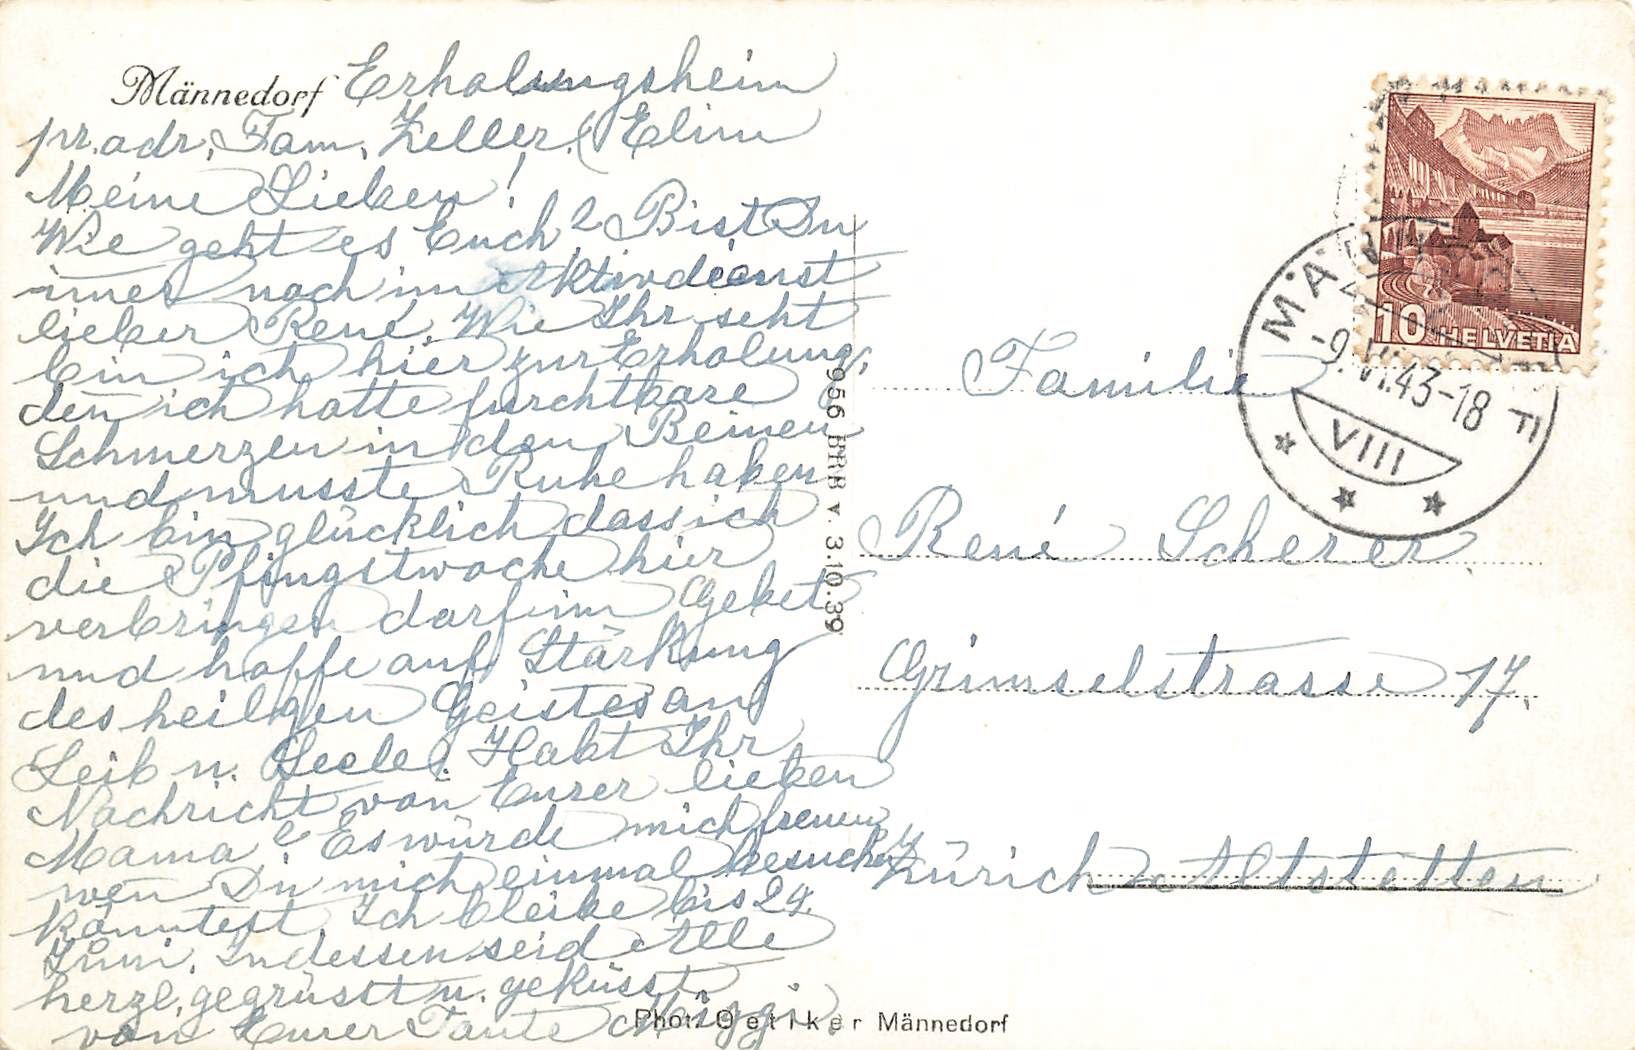 Männedorf Erholungsheim
pr. adr. Fam. Zeller (Elim
Meine Lieben!
Wie geht es Euch? Bist Du
imer noch im Aktivdienst
lieber René. Wie Ihr seht
bin ich hier zur Erholung,
den ich hatte furchtbare
Schmerzen in den Beinen
und musste Ruhe haben
Ich bin glücklich dass ich
die Pfingstwoche hier
verbringen darf im Gebet
und hoffe auf Stärkung
des heiligen Geistes an
Leib u. Seele. Habt Ihr
Nachricht von Eurer lieben
Mama? Es würde mich freuen
wen Du mich einmal besuchen
könntest. Ich bleibe bis 24.
Juni. Indessen seid Alle
herzl. gegrüsst u. geküsst
von Eurer Tante Miggi.
956 BRB v. 3.10.39
Phot. Oetiker Männedorf
10 HELVETIA
MÄNNEDORF
-9.VI.43-18
VIII
Familie
René Scherer.
Grimselstrasse 17.
Zürich Altstetten